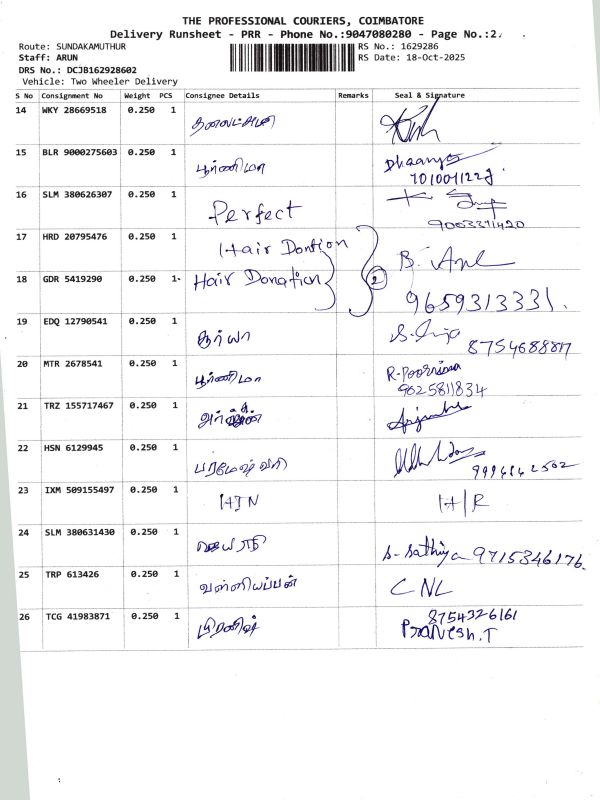 THE PROFESSIONAL COURIERS, COIMBATORE
Delivery Runsheet - PRR - Phone No.:9047080280 - Page No.:2
Route: SUNDAKAMUTHUR RS No.: 1629286
Staff: ARUN RS Date: 18-Oct-2025
DRS No.: DCJB162928602
Vehicle: Two Wheeler Delivery
S No Consignment No Weight PCS Consignee Details Remarks Seal & Signature
14 WKY 28669518 0.250 1 தனலட்சுமி
15 BLR 9000275603 0.250 1 பூர்ணிமா Dhaanya
7010041229
16 SLM 380626307 0.250 1 Perfect
9003371420
17 HRD 20795476 0.250 1 Hair Dontion B.
18 GDR 5419290 0.250 1 Hair Donation 2
9659313331.
19 EDQ 12790541 0.250 1 சூர்யா
8754688817
20 MTR 2678541 0.250 1 பூர்ணிமா R-Poornima
9625811834
21 TRZ 155717467 0.250 1
22 HSN 6129945 0.250 1 பரமேஷ்வரி
9994142502
23 IXM 509155497 0.250 1 HJN H/R
24 SLM 380631430 0.250 1 ஜெயரதி S-Sathiya 9715346176.
25 TRP 613426 0.250 1 வள்ளியப்பன் CNL
26 TCG 41983871 0.250 1 பிரனிஷ் 8754326161
Pranesh.T